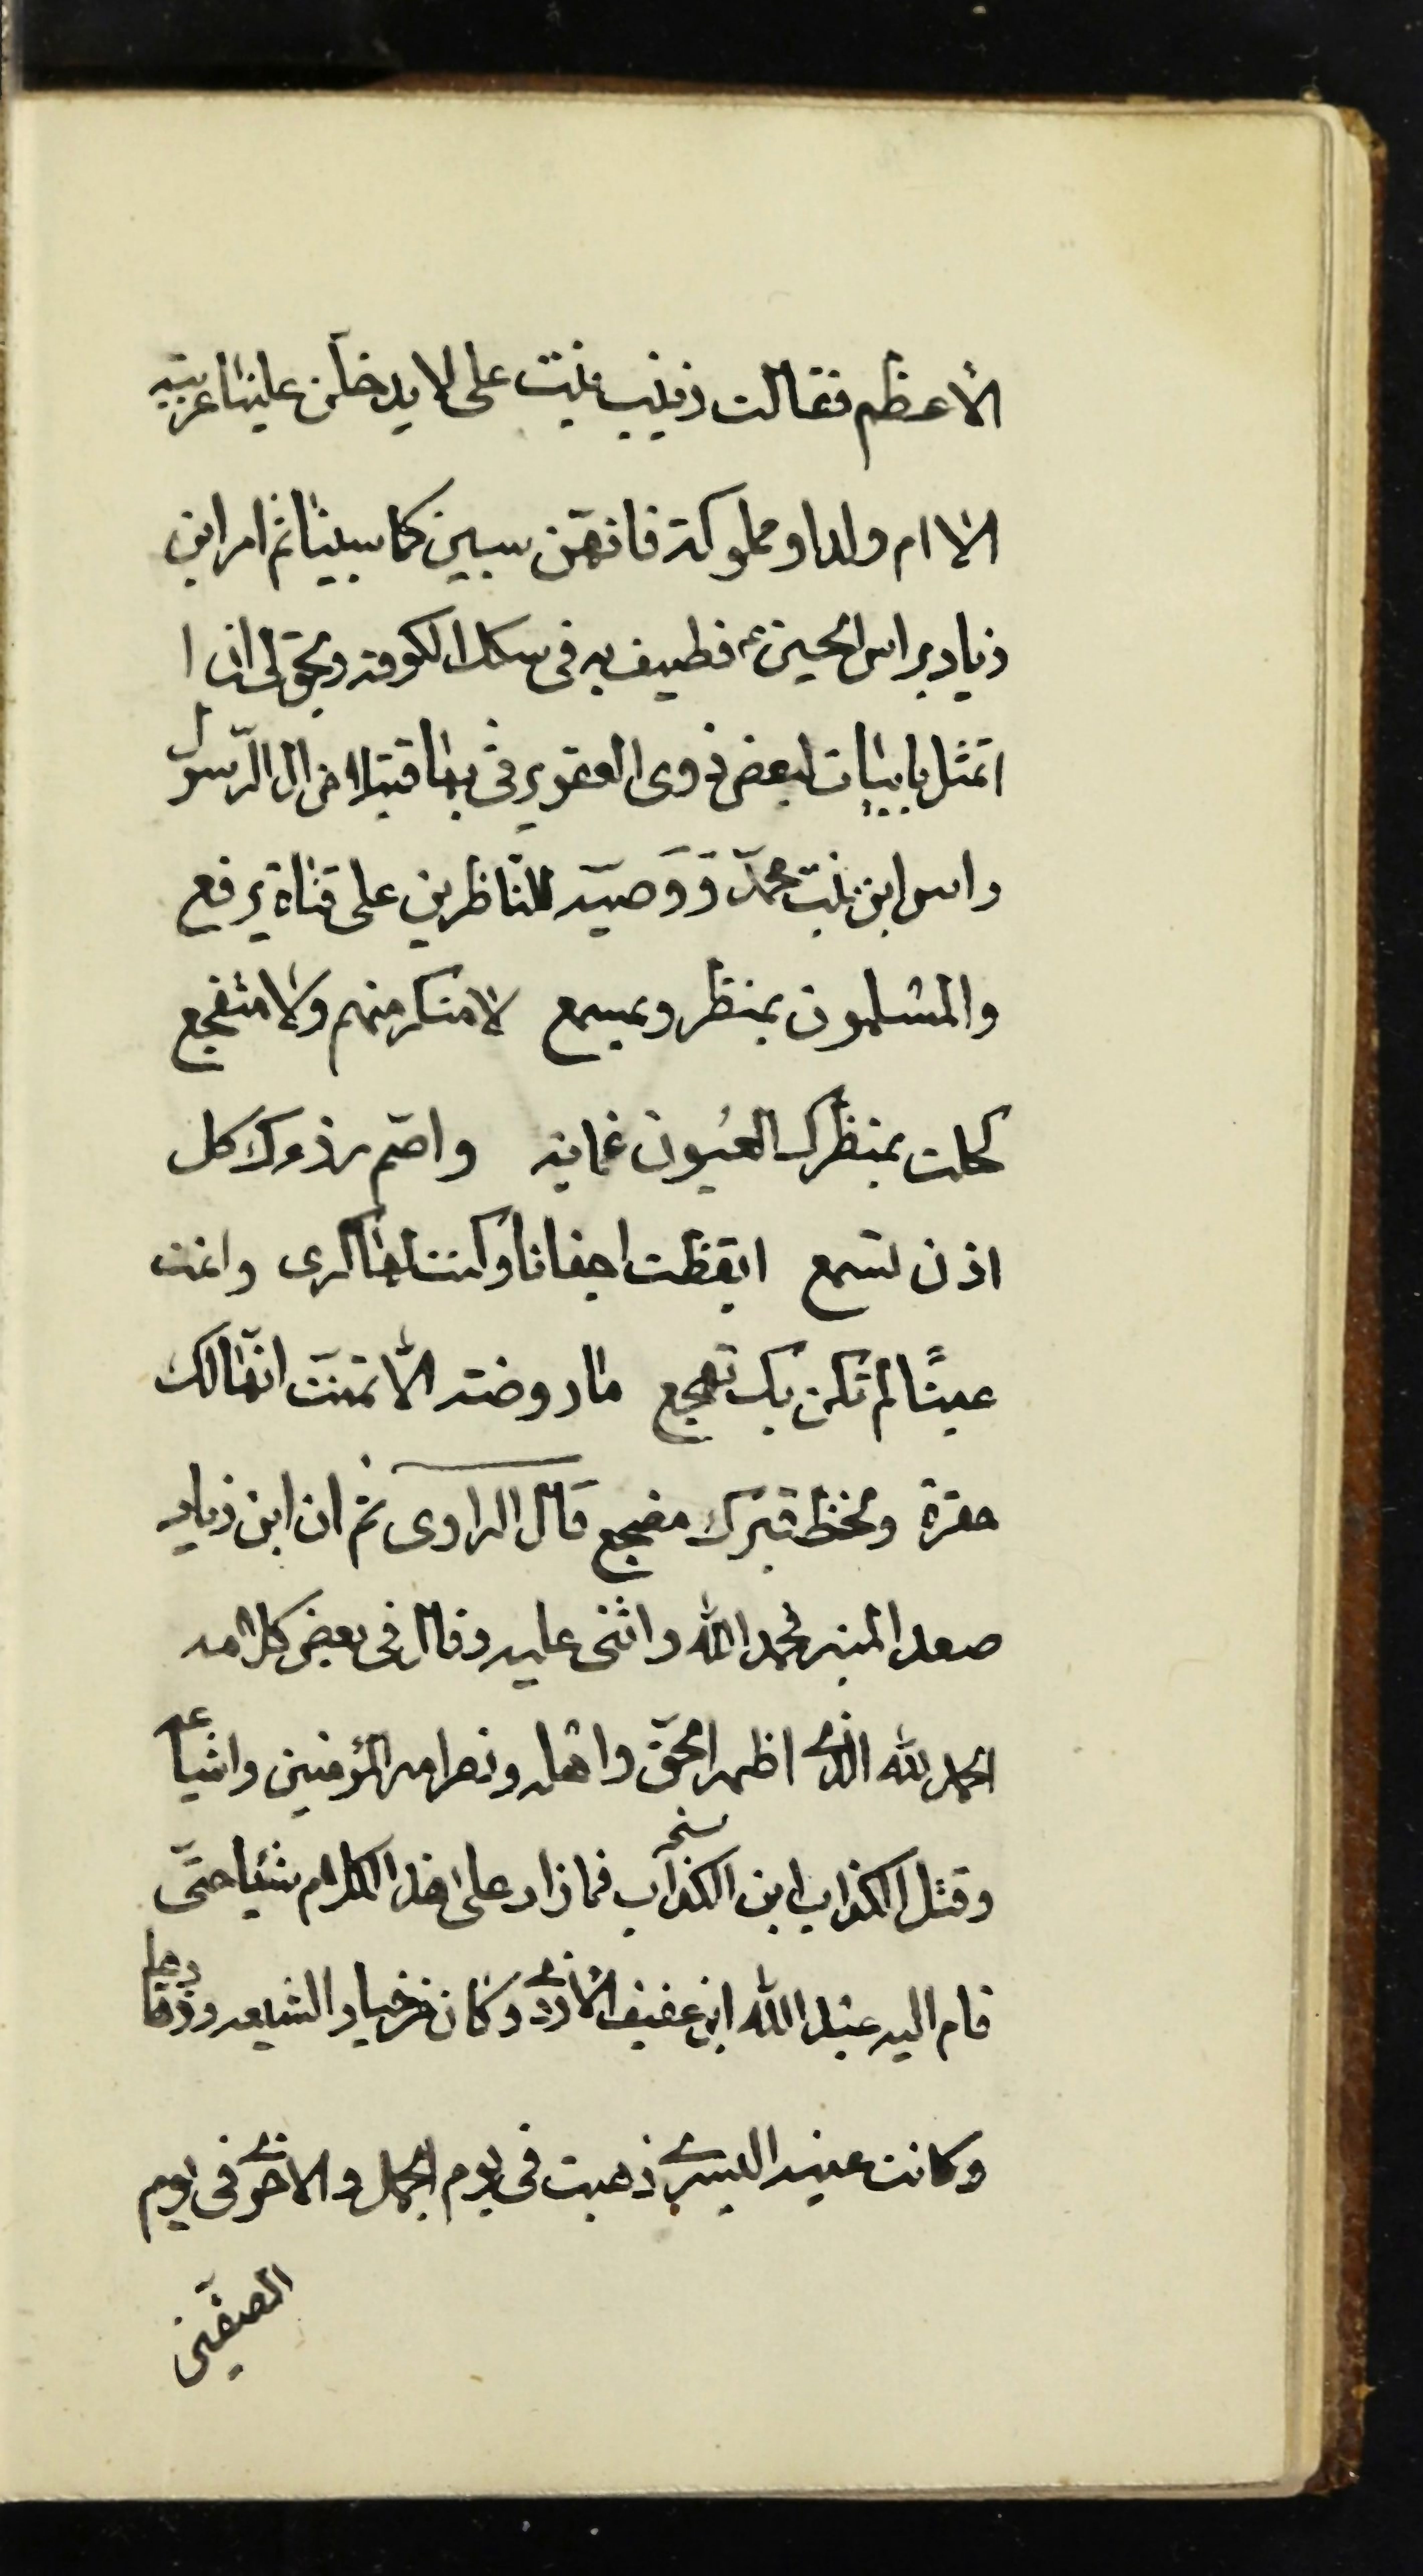 الأعظم فقالت زينب بنت على لا يدخلن علينا عربيّه
الا ام ولد او مملوكة فانهّن سبين كما سبينا ثم امر ابن
زياد براس الحسين ع فطيف به فى سكك الكوفه ويحق لى ان ا
اتمثل بابيات لبعض ذوى العقول يرثى بها قتيلا من ال الرّسول
راس ابن بنت محمّد وَوَصيّه للنّاظرين على قناة يرفع
والمسلمون بمنظر وبمسمع لا منكر منهم ولا متفجع
كحلت بمنظرك العيون عماية واصّم رزؤك كل
اذن تسمع ايقظت اجفانا وكنت لها كرى وانمت
عينًا لم تكن بك تهجع ما روضه الّا تمنّت انّها لك
حفرة ولخظ قبرك مضجع قال الراوى ثم ان ابن زياد
صعد المنبر فحمد الله واثنى عليه وقال فى بعض كلامه
الحمد لله الذى اظهر الحقّ واهله ونصر امير المؤمنين واشياعه
وقتل الكذاب ابن الكذاب فما زاد على هذا الكلام شيئا حتّى
قام اليه عبد الله ابن عفيف الأزدى وكان من خيار الشيعه وزهادها
وكانت عينه اليسرى ذهبت فى يوم الجمل والاخرى فى يوم
الصفّين